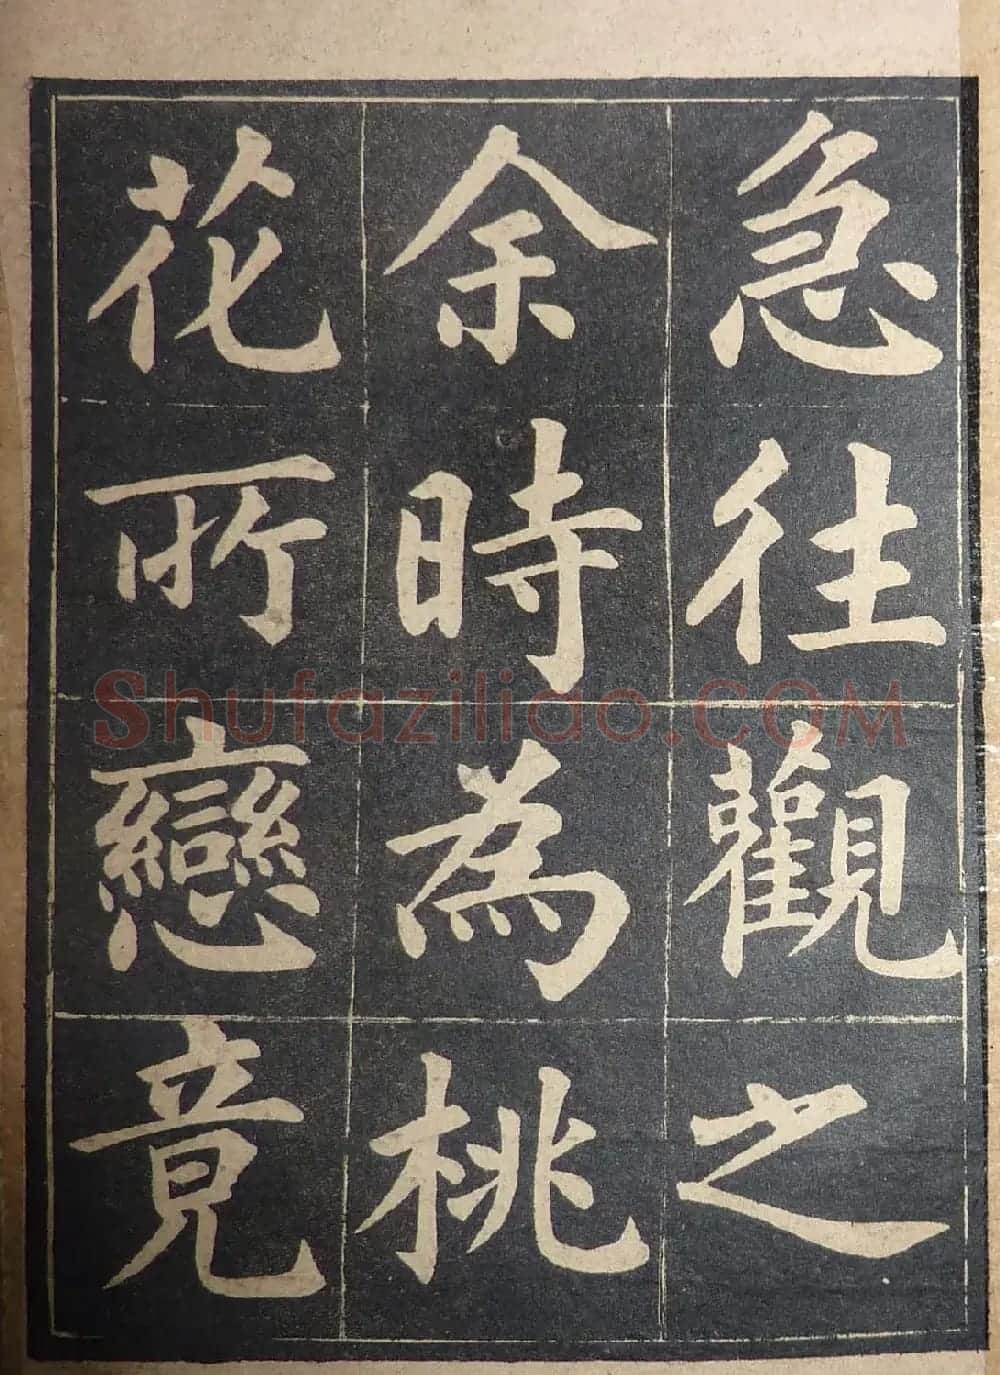 急往觀之
余時為桃
花所戀竟
Shufaziliao.COM